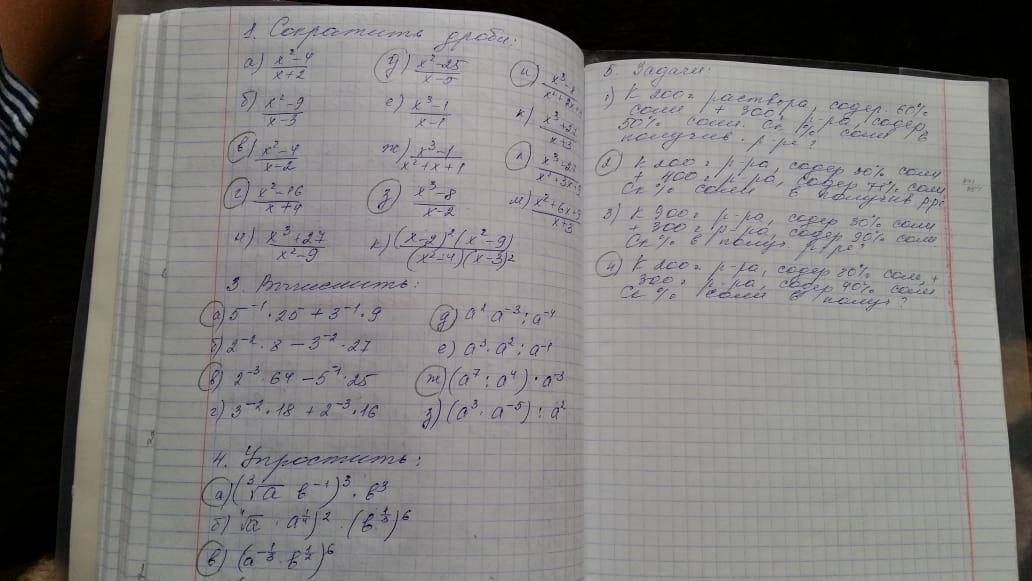 1. Сократить дроби:
а) x²-4/x+2 д) x²-25/x-5 и) x³-8/x²+2x+
б) x²-9/x-3 е) x³-1/x-1 к) x³+27/x+3
в) x²-4/x-2 ж) x³-1/x²+x+1 л) x³+27/x²+3x+9
г) x²-16/x+4 з) x³-8/x-2 м) x²+6x+9/x+3
н) x³+27/x²-9 к) (x-2)²(x²-9)/(x²-4)(x-3)²
3. Вычислить:
а) 5⁻¹·25+3⁻¹·9 д) a²·a⁻³:a⁻⁴
б) 2⁻²·8-3⁻²·27 е) a³·a²:a⁻¹
в) 2⁻³·64-5⁻¹·25 ж) (a⁷:a⁴)·a⁻³
г) 3⁻²·18+2⁻³·16 з) (a³·a⁻⁵):a²
4. Упростить:
а) (³√a b⁻¹)³·b³
б) ⁴√a·a^(1/4))²·(b^(1/3))⁶
в) (a^(-1/3)·b^(1/2))⁶
5. Задачи:
1) К 200г раствора, содер. 60%
соли + 300г р-ра, содер
50% соли. Ск % соли в
получив. р-ре?
2) К 200г р-ра, содер 30% соли
+ 400г р-ра, содер % соли
Ск % соли в получив р-ре
3) К 900г р-ра, содер 30% соли
+ 300г р-ра, содер 90% соли
Ск % в получ. р-ре?
4) К 200г р-ра, содер 80% соли, +
300г р-ра, содер 40% соли
Ск % соли в получ?